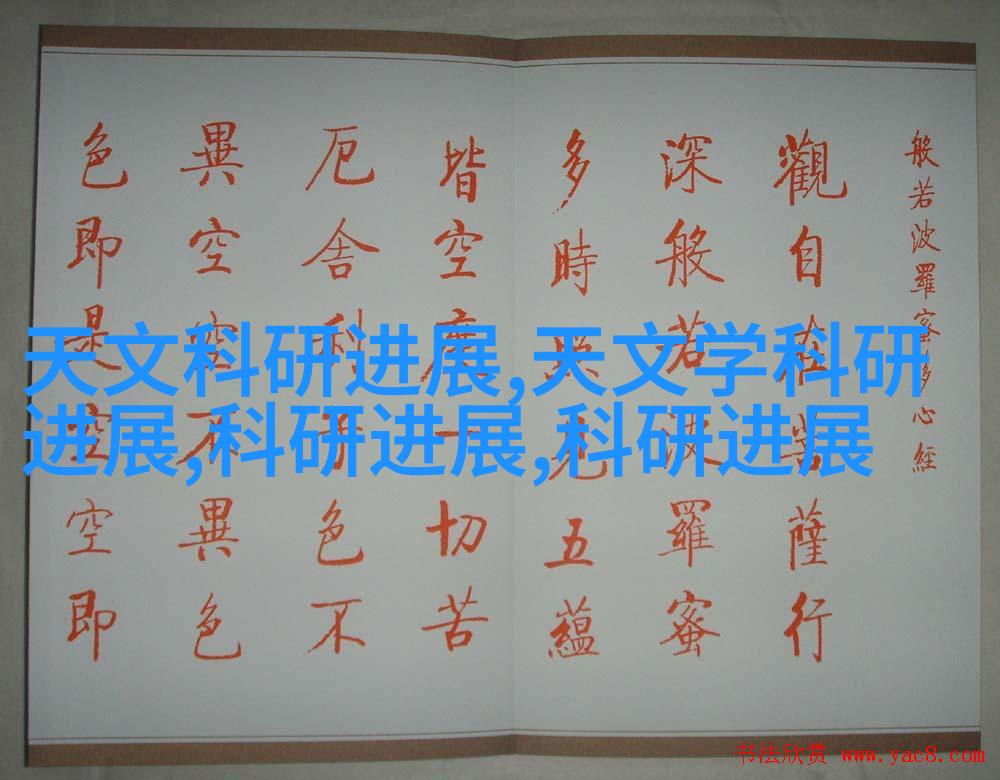 般若波羅蜜多心經
觀自在菩薩行
深般若波羅蜜
多時照見五蘊
皆空度一切苦
厄舍利子色不
異空空不異色
色即是空空即
天文科研进展,天文学科研
进展,科研进展,科研进展
书法欣赏 www.yac8.com